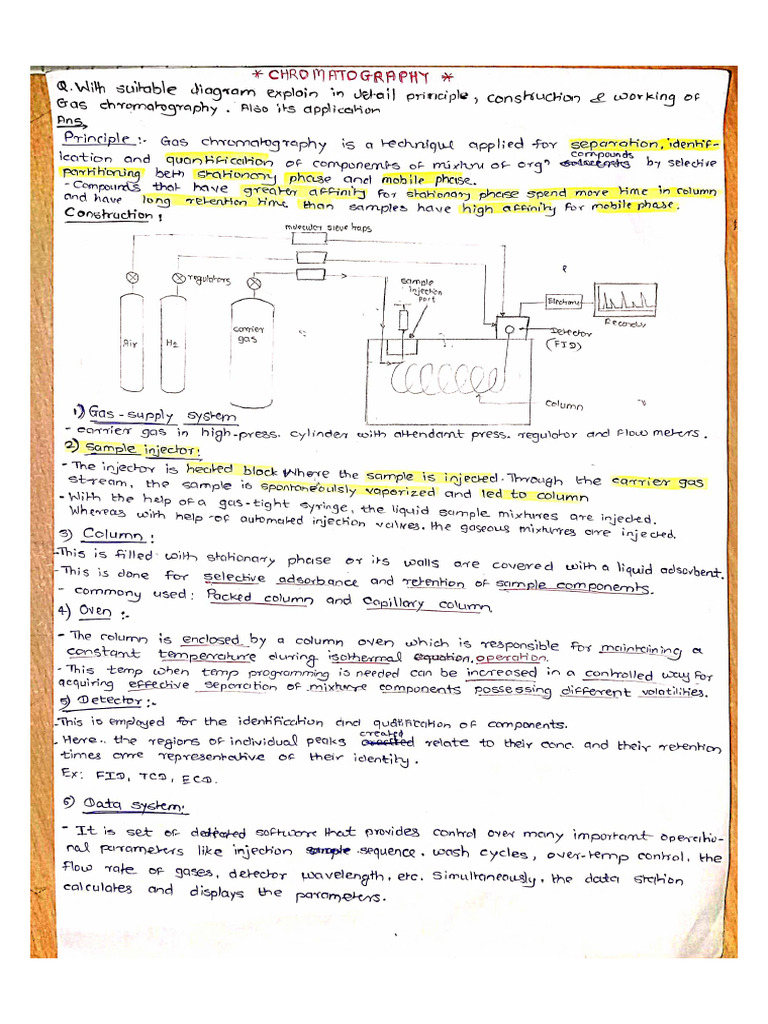 * CHROMATOGRAPHY *
Q. With suitable diagram explain in detail principle, construction & working of
Gas chromatography. Also its application
Ans,
Principle :- Gas chromatography is a technique applied for separation, identif-
ication and quantification of components of mixture of orgn compounds by selective
partitioning betn stationary phase and mobile phase.
- Compounds that have greater affinity for stationary phase spend more time in column
and have long retention time than samples have high affinity for mobile phase.
Construction :
molecular sieve traps
regulators
sample
injection
port
Air
H2
carrier
gas
Electrome
Recorder
Detector
(FID)
column
1) Gas-supply system
- carrier gas in high-press. cylinder with attendant press. regulator and flow meters.
2) Sample injector:
- The injector is heated block where the sample is injected. Through the carrier gas
stream, the sample is spontaneoulsly vaporized and led to column
- With the help of a gas-tight syringe, the liquid sample mixtures are injected.
Whereas with help of automated injection valves. the gaseous mixtures are injected.
3) Column :
- This is filled with stationary phase or its walls are covered with a liquid adsorbent.
- This is done for selective adsorbance and retention of sample components.
- commony used: Packed column and Capillary column.
4) Oven :-
- The column is enclosed by a column oven which is responsible for maintaining a
constant temperature during isothermal equation, operation.
- This temp when temp programming is needed can be increased in a controlled way for
acquiring effective separation of mixture components possessing different volatilities.
5) Detector :-
- This is employed for the identification and quatification of components.
- Here.. the regions of individual peaks created relate to their conc. and their retention
times are representative of their identity.
Ex: FID, TCD, ECD.
6) Data system:
- It is set of software that provides control over many important operatio-
nal parameters like injection sample sequence, wash cycles, over-temp control, the
flow rate of gases, detector wavelength, etc. Simultaneously, the data station
calculates and displays the parameters.